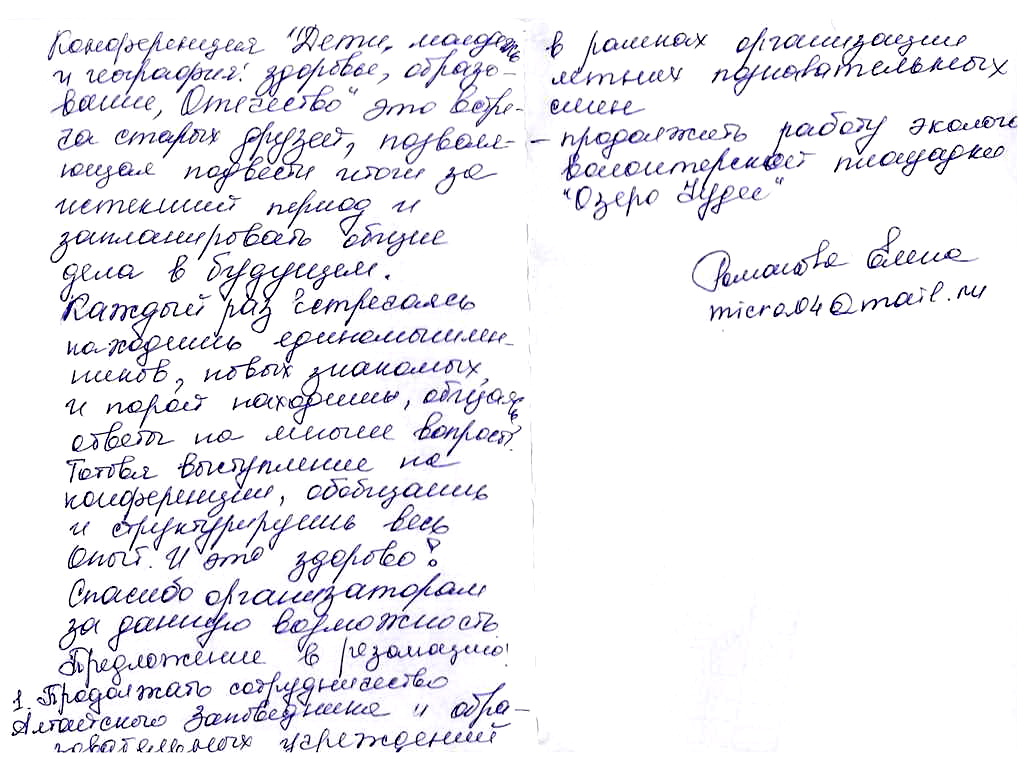 Конференция "Дети, молодежь
и география: здоровье, образо-
вание, Отечество" это встре-
ча старых друзей, позволя-
ющая подвести итоги за
истекший период и
запланировать общие
дела в будущем.
Каждый раз встречаясь
находишь единомышлен-
ников, новых знакомых,
и порой находишь, общаясь
ответы на многие вопросы?
Готовя выступление на
конференции, обобщаешь
и структурируешь весь
опыт. И это здорово!
Спасибо организаторам
за данную возможность
Предложение в резолюцию:
1. Продолжать сотрудничество
Алтайского заповедника и обра-
зовательных учреждений
в рамках организации
летних познавательных
смен
- продолжить работу эколого
волонтерской площадки
"Озеро Чудес"
Романова Елена
micro04@mail.ru